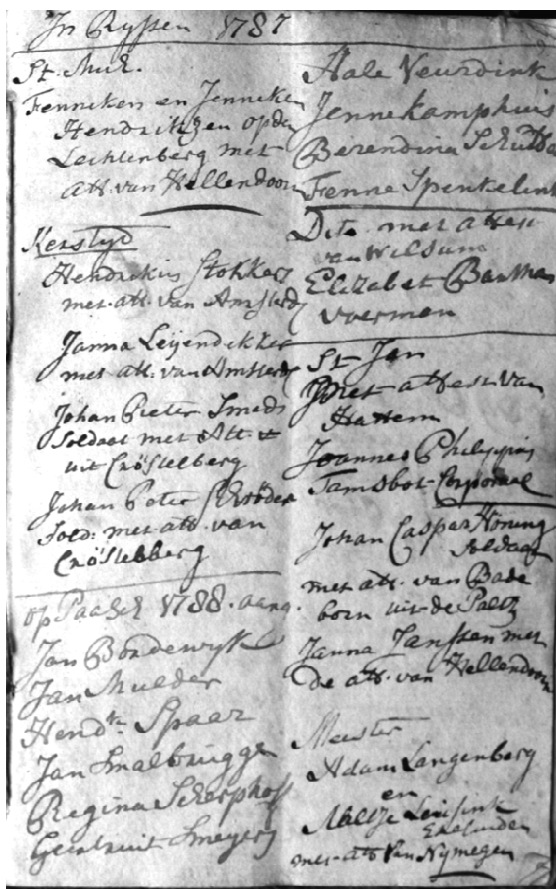 In Ryssen 1787
St. Mich.
Fenneken en Jenneken
Hendrikzen op de
Lechtenberg met
att. van Hellendoorn
Kerstyd
Hendrikus Stokkers
met att. van Amsterd
Janna Leijendekker
met att. van Amsterd
Johan Pieter Smeds
Soldaat met Att
uit Cröstelberg
Johan Peter Schröder
Sold: met att. van
Cröstelberg
op Paasch 1788. aang.
Jan Bondewyk
Jan Mulder
Hendk. Spaar
Jan Smalbrugge
Regina Scherphof
Geertruit Smeyers
Hale Veurdink
Jenne Kamphuis
Berendina Schutte
Fenne Spenkelink
Dito met attest
van Wilsum
Elizabet
Voerman
St Jan
met attest van
Hattem
Joannes Philippus
Tamsbot Corporaal
Johan Caspar Honing
soldaat
met att. van Bade
born uit de Paltz
Janna Janssen met
de att. van Hellendoorn
Meester
Adam Langenberg
en
Aaltje Leusink
Eheluiden
met att van Nymegen